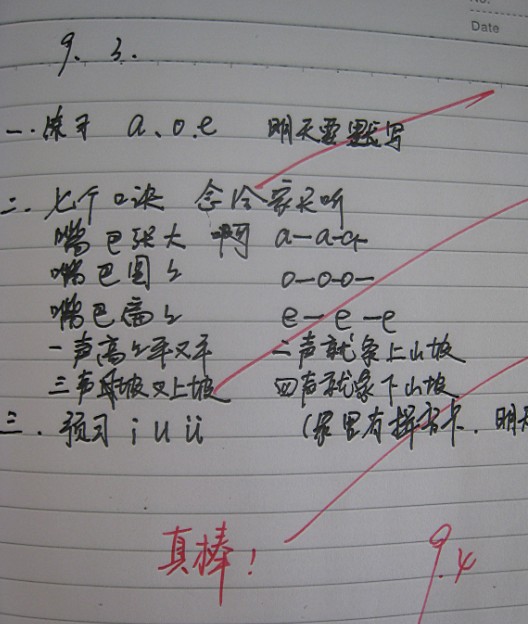 No.
Date
9.3.
一.练习 a、o、e 明天要默写
二.七个口诀 念给家长听
嘴巴张大 啊 a-a-a-
嘴巴圆々 o-o-o-
嘴巴扁々 e-e-e
一声高々平又平 二声就象上山坡
三声下坡又上坡 四声就象下山坡
三.预习 i u ü (家里有拼音卡.明天
真棒!
9.4